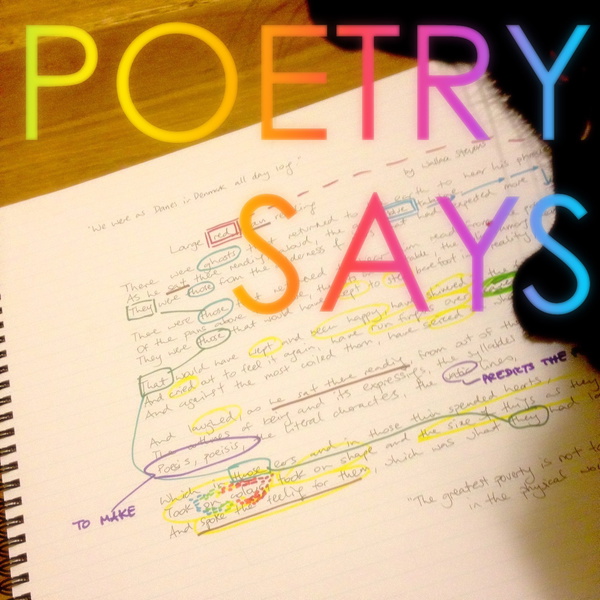 POETRY
SAYS
"We were as Danes in Denmark all day long"
by Wallace Stevens
Large red man reading
There were ghosts that returned to earth to hear his
As he sat there reading, aloud, the
They were those from the wilderness of that had expected more
There were those that
Of the pans above
They were those that would have wept to step barefoot into reality
That would have wept and been happy, have shivered
And cried out to feel it again, have run fingers over
And against the most coiled thorn, have seized
And laughed, as he sat there reading, from out of the
The outlines of being and its expressings, the syllables
Poesis, poesis, the literal characters, the vatic lines,
PREDICTS THE
Which in those ears and in those thin spended hearts,
Took on color, took on shape and the size of things as they
And spoke the feeling for them, which was what they had
TO MAKE
"The greatest poverty is not to
in the physical